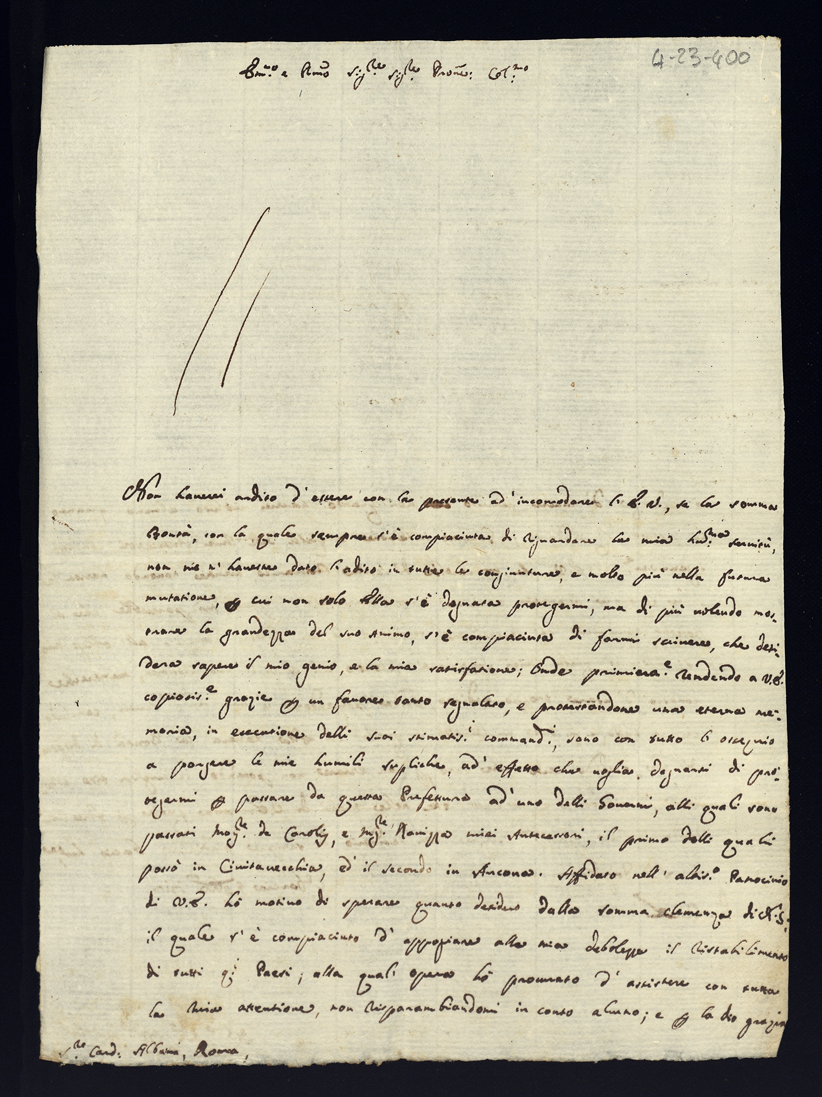 4-23-400
Em.mo e Rmo Sig.re Sig.re Prone: Col.mo
Non haverei ardito d'essere con la presente ad'incomodare l'E.V., se la somma
Bontà, con la quale sempre s'è compiaciuta di riguardare la mia hu.ma servitù,
non me n'havesse dato l'adito in tutte le congiunture, e molto più nella futura
mutatione, p cui non solo Ella s'è degnata proteggermi, ma di più volendo mos-
trare la grandezza del suo Animo, s'è compiaciuta di farmi scrivere, che desi-
dera sapere il mio genio, e la mia satisfatione; Onde primiera.e rendendo a V.E.
copiosis.e gratie p un favore tanto segnalato, e protestandone una eterna me-
moria, in esecutione delli suoi stimatis.i commandi, sono con tutto l'ossequio
a porgere le mie humili supliche, ad'effetto che voglia degnarsi di pro-
tegermi p passare da questa Prefettura ad'uno delli Governi, alli quali sono
passati Mg.re de Carolis, e Mg.re Ranizza miei Antecessori, il primo delli quali
passò in Civitavecchia, ed il secondo in Ancona. Affidato nell'altis.o Patrocinio
di V.E. hò motivo di sperare quanto desidero dalla somma clemenza di N.S.
il quale s'è compiaciuto d'appoggiare alla mia debolezza il ristabilimento
di tutti q.i Paesi; alla quali opera hò procurato d'assistere con tutta
la mia attentione, non risparambiandomi in conto alcuno; e p la Dio grazia
S.re Card: Albani, Roma,